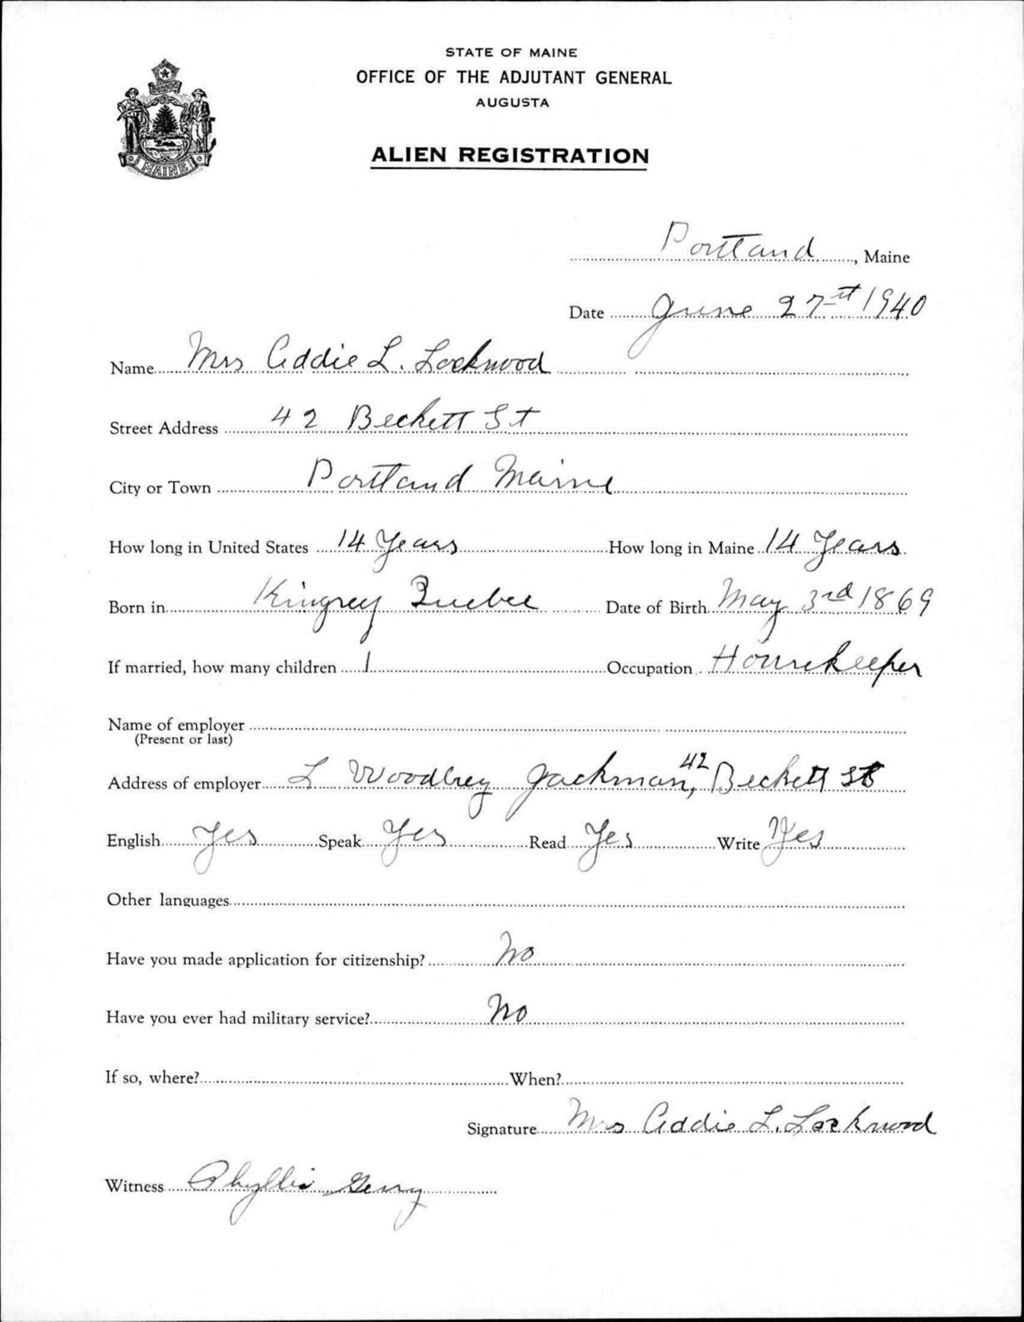 STATE OF MAINE
OFFICE OF THE ADJUTANT GENERAL
AUGUSTA
ALIEN REGISTRATION
MAINE
Portland, Maine
Date June 27st 1940
Name Mrs Addie L. Lockwood
Street Address 42 Beckett St
City or Town Portland Maine
How long in United States 14 Years How long in Maine 14 Years
Born in Kingrey Quebec Date of Birth May 3rd 1869
If married, how many children 1 Occupation Housekeeper
Name of employer
(Present or last)
Address of employer L Woodbrey Jackman, 42 Beckett St
English Yes Speak Yes Read Yes Write Yes
Other languages
Have you made application for citizenship? No
Have you ever had military service? No
If so, where? When?
Signature Mrs Addie L. Lockwood
Witness Phyllis Gerry